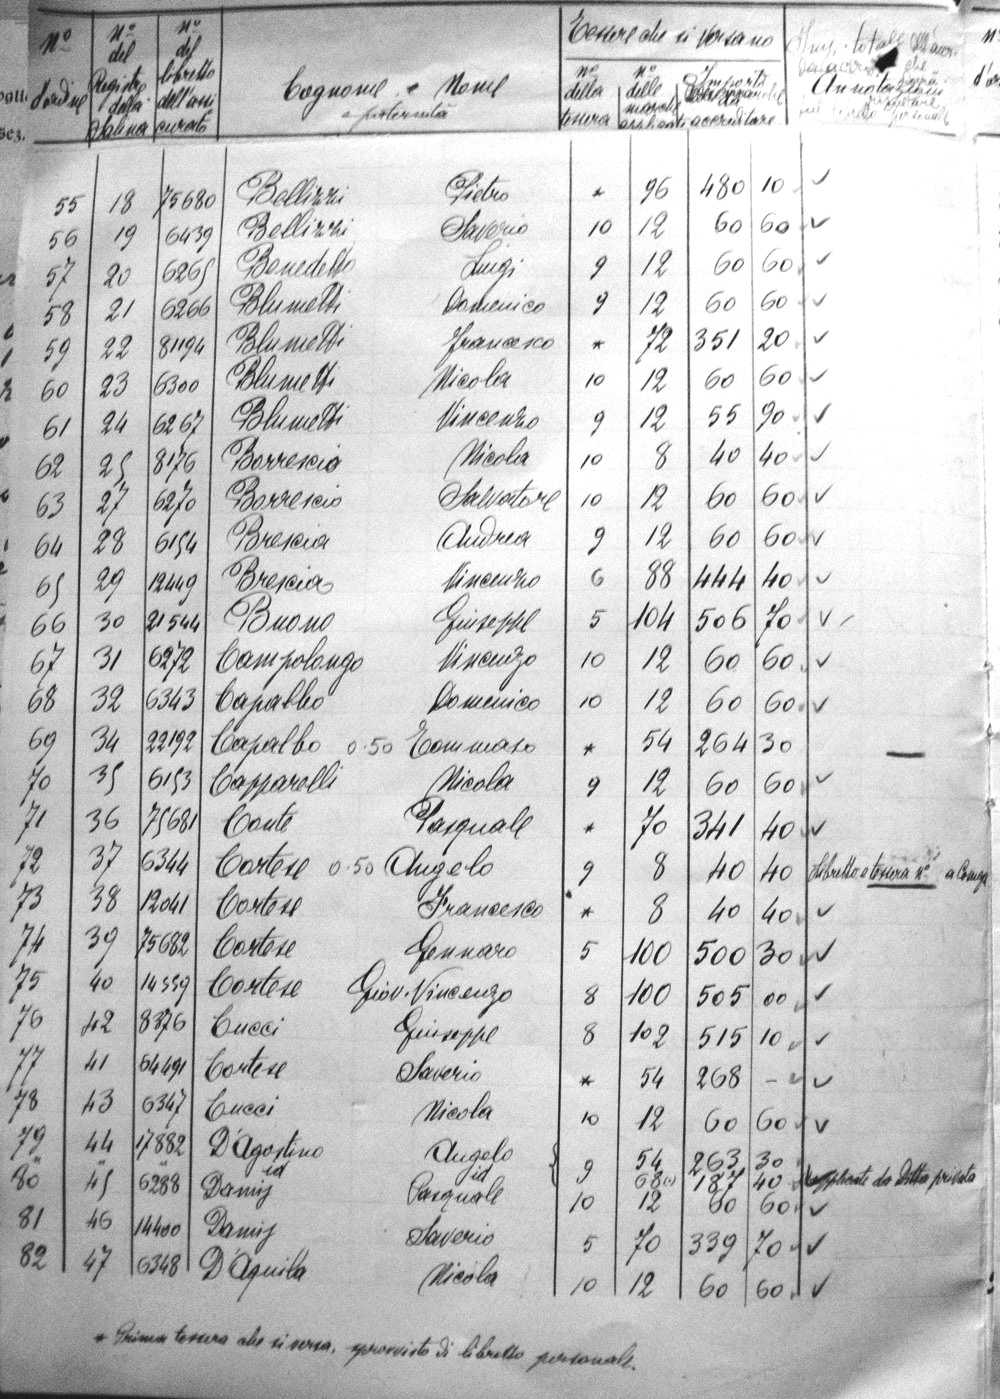 Nº d'ordine
nº del Registro della Salina
nº del libretto dell'assicurato
Cognome e Nome
e paternità
Tessere che si versano
nº della tessera
nº delle marche applicate
Importo da accreditare
Annotazioni
55 18 75680 Bellizzi Pietro * 96 480 10 ✓
56 19 6439 Bellizzi Saverio 10 12 60 60 ✓
57 20 6265 Benedetto Luigi 9 12 60 60 ✓
58 21 6266 Blumetti Domenico 9 12 60 60 ✓
59 22 81194 Blumetti Francesco * 72 351 20 ✓
60 23 6300 Blumetti Nicola 10 12 60 60 ✓
61 24 6267 Blumetti Vincenzo 9 12 55 90 ✓
62 25 8176 Borrescio Nicola 10 8 40 40 ✓
63 27 6270 Borrescio Salvatore 10 12 60 60 ✓
64 28 6154 Brescia Andrea 9 12 60 60 ✓
65 29 12449 Brescia Vincenzo 6 88 444 40 ✓
66 30 21544 Buono Giuseppe 5 104 506 70 ✓
67 31 6272 Campolongo Vincenzo 10 12 60 60 ✓
68 32 6343 Capalbo Domenico 10 12 60 60 ✓
69 34 22192 Capalbo 0.50 Tommaso * 54 264 30 —
70 35 6153 Capparelli Nicola 9 12 60 60 ✓
71 36 75681 Conte Pasquale * 70 341 40 ✓
72 37 6344 Cortese 0.50 Angelo 9 8 40 40 libretto e tessera nº a
73 38 12041 Cortese Francesco * 8 40 40 ✓
74 39 75682 Cortese Gennaro 5 100 500 30 ✓
75 40 14559 Cortese Giov. Vincenzo 8 100 505 00 ✓
76 42 8376 Cucci Giuseppe 8 102 515 10 ✓
77 41 64491 Cortese Saverio * 54 268 – ✓
78 43 6347 Cucci Nicola 10 12 60 60 ✓
79 44 17882 D'Agostino Angelo 9 54 263 30
" " " id id 68 187 40 applicate da Ditta privata
80 45 6288 Damis Pasquale 10 12 60 60 ✓
81 46 14400 Damis Saverio 5 70 339 70 ✓
82 47 6348 D'Aquila Nicola 10 12 60 60 ✓
* Prima tessera che si versa, sprovvisto di libretto personale.